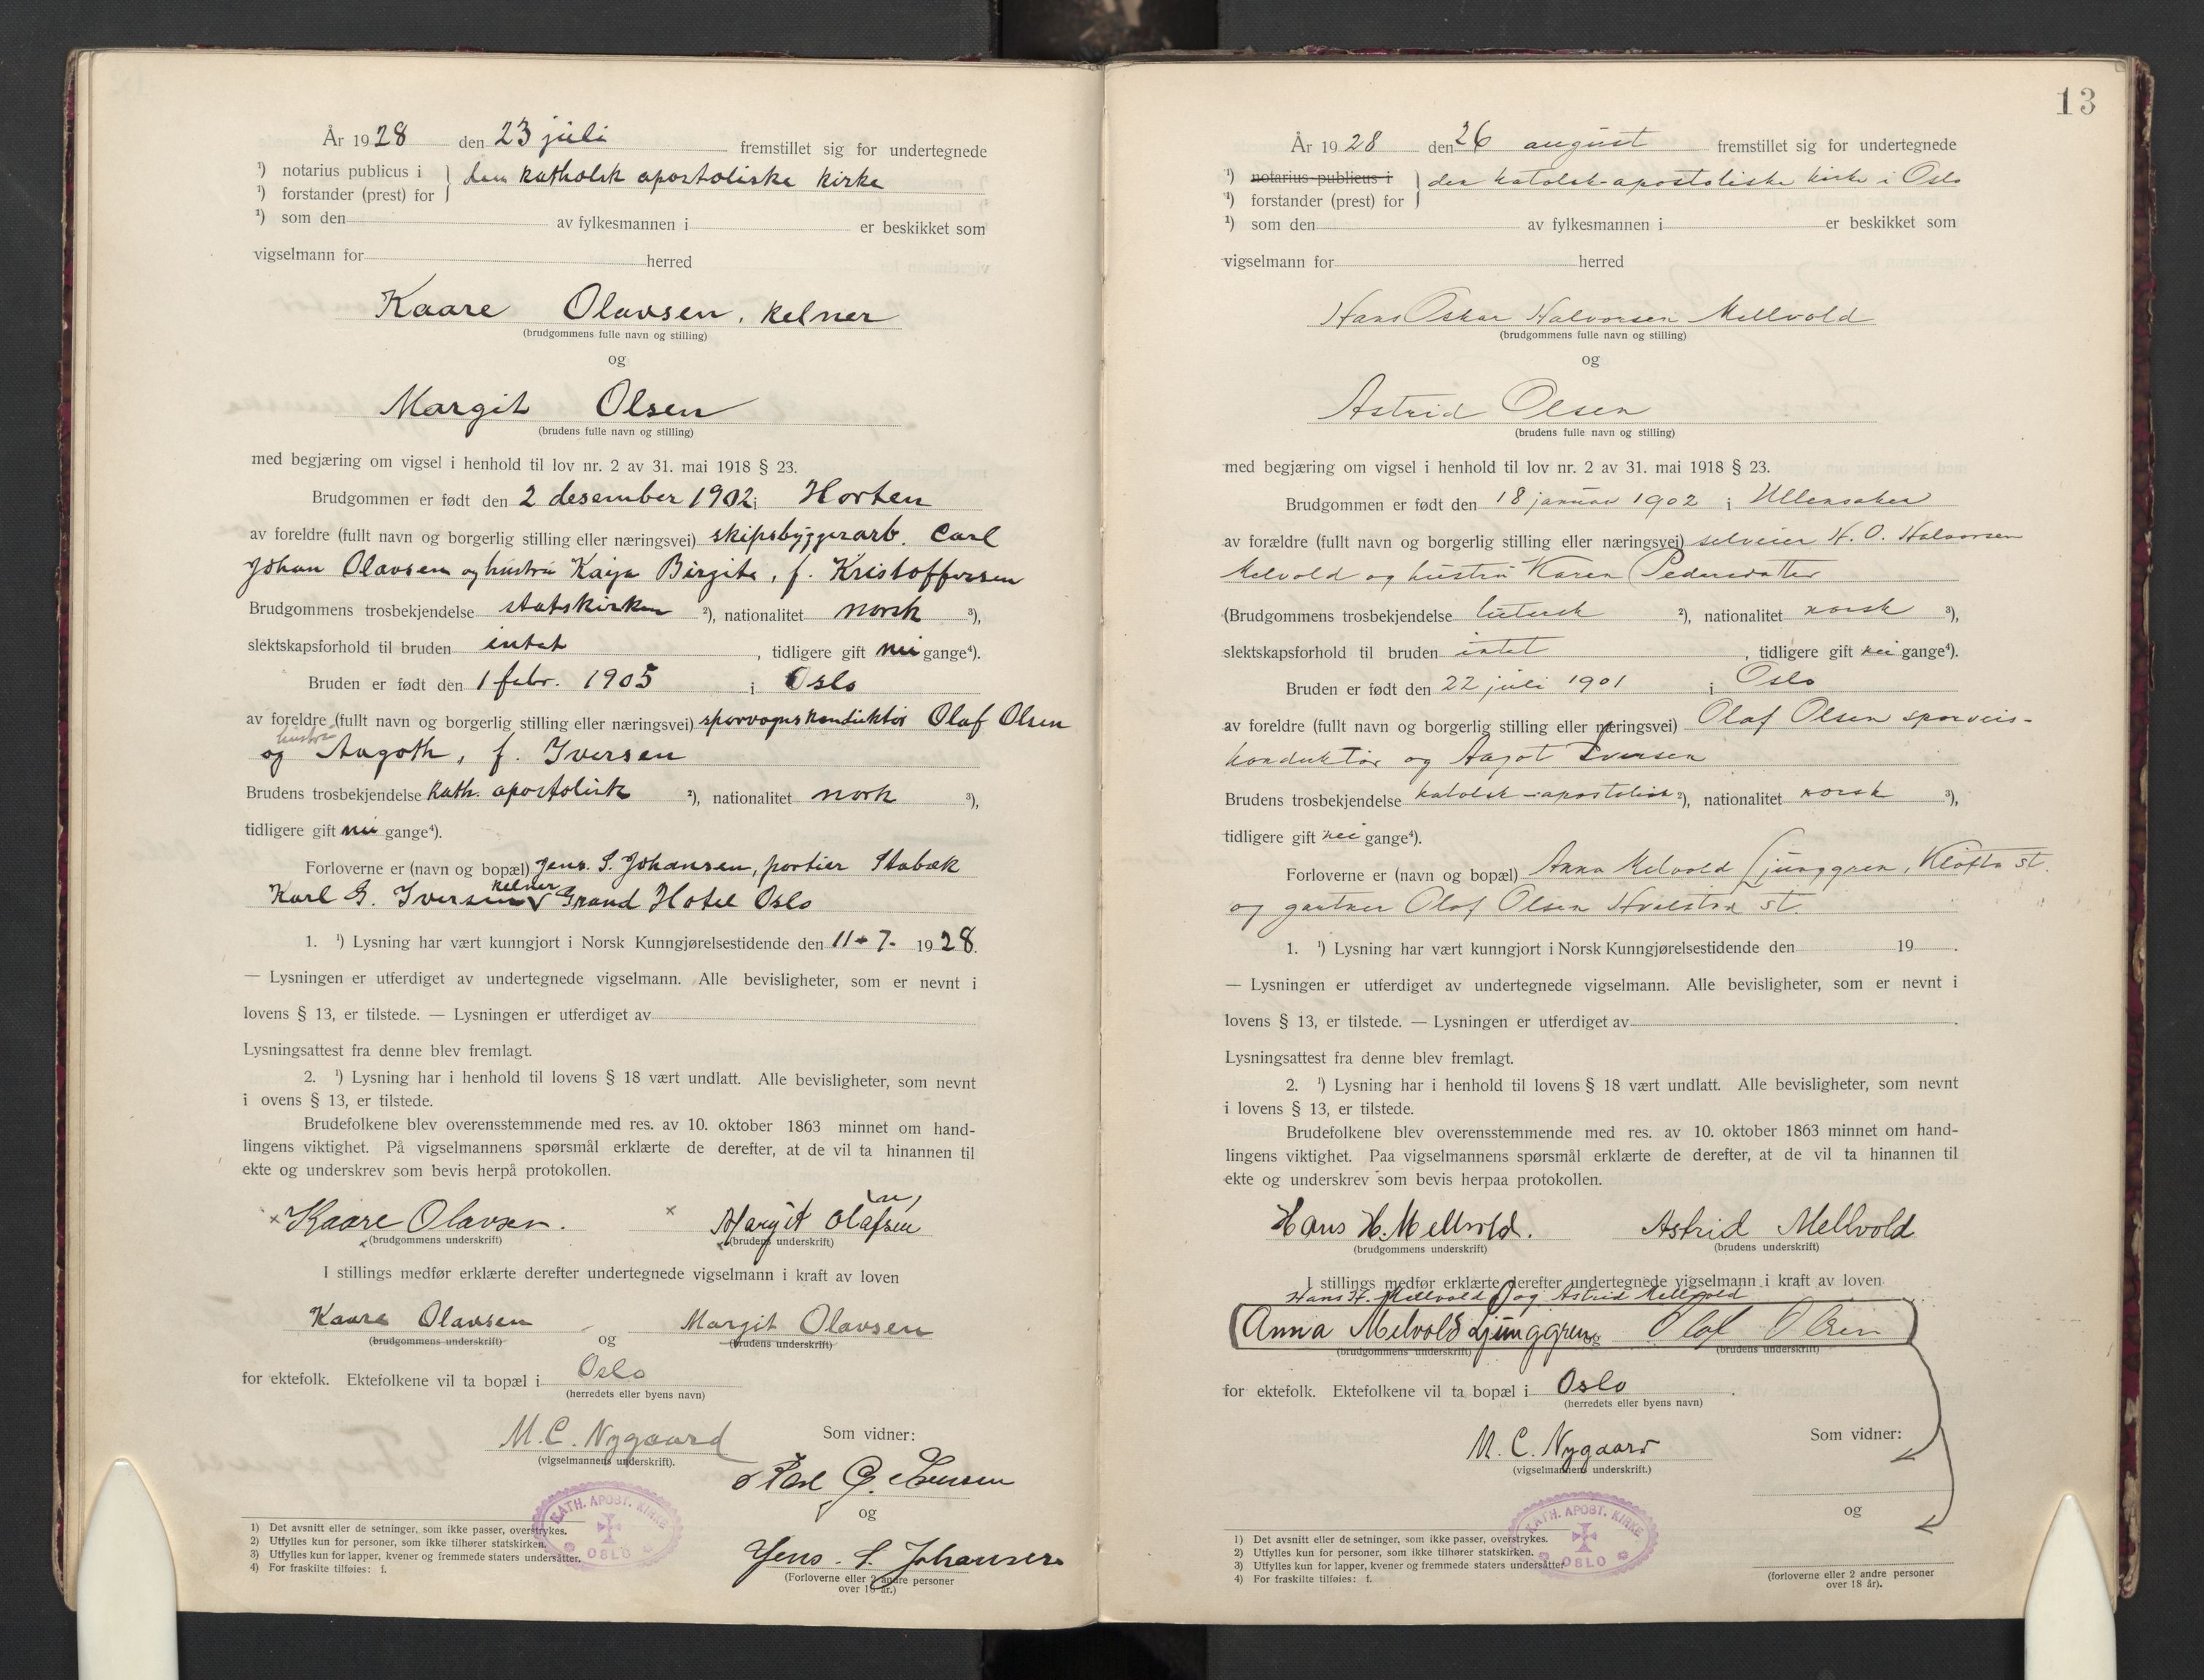 År 1928 den 23 juli fremstillet sig for undertegnede
¹) notarius publicus i } den katholsk apostoliske kirke
¹) forstander (prest) for
¹) som den av fylkesmannen i er beskikket som
vigselmann for herred
Kaare Olavsen, kelner
(brudgommens fulle navn og stilling)
og
Margit Olsen
(brudens fulle navn og stilling)
med begjæring om vigsel i henhold til lov nr. 2 av 31. mai 1918 § 23.
Brudgommen er født den 2 desember 1902 i Horten
av foreldre (fullt navn og borgerlig stilling eller næringsvei) skipsbyggerarb. Carl
Johan Olavsen og hustru Kaija Birgite, f. Kristoffersen
Brudgommens trosbekjendelse statskirken ²), nationalitet norsk ³),
slektskapsforhold til bruden intet, tidligere gift nei gange⁴).
Bruden er født den 1 febr. 1905 i Oslo
av foreldre (fullt navn og borgerlig stilling eller næringsvei) sporvognskonduktör Olaf Olsen
hustru
og Aagoth, f. Iversen
Brudens trosbekjendelse kath. apostolisk ²), nationalitet norsk ³),
tidligere gift nei gange⁴).
Forloverne er (navn og bopæl) Jens. S. Johansen, portier Stabæk
kelner
Karl G. Iversen √ Grand Hotel Oslo
1. ¹) Lysning har vært kunngjort i Norsk Kunngjørelsestidende den 11-7- 1928.
— Lysningen er utferdiget av undertegnede vigselmann. Alle bevisligheter, som er nevnt i
lovens § 13, er tilstede. — Lysningen er utferdiget av
Lysningsattest fra denne blev fremlagt.
2. ¹) Lysning har i henhold til lovens § 18 vært undlatt. Alle bevisligheter, som nevnt
i ovens § 13, er tilstede.
Brudefolkene blev overensstemmende med res. av 10. oktober 1863 minnet om hand-
lingens viktighet. På vigselmannens spørsmål erklærte de derefter, at de vil ta hinannen til
ekte og underskrev som bevis herpå protokollen.
× Kaare Olavsen. × Margit Olafsen
(brudgommens underskrift) (brudens underskrift)
I stillings medfør erklærte derefter undertegnede vigselmann i kraft av loven
Kaare Olavsen og Margit Olavsen
(brudgommens underskrift) (brudens underskrift)
for ektefolk. Ektefolkene vil ta bopæl i Oslo
(herredets eller byens navn)
M. C. Nygaard
(vigselmannens underskrift).
Som vidner:
Karl G. Iversen
og
Jens. S. Johansen
(Forloverne eller 2 andre personer
over 18 år.)
KATH. APOST. KIRKE
OSLO
1) Det avsnitt eller de setninger, som ikke passer, overstrykes.
2) Utfylles kun for personer, som ikke tilhører statskirken.
3) Utfylles kun for lapper, kvener og fremmede staters undersåtter.
4) For fraskilte tilføies: f.
13
År 1928 den 26 august fremstillet sig for undertegnede
¹) notarius publicus i } den katolsk-apostoliske kirke i Oslo
¹) forstander (prest) for
¹) som den av fylkesmannen i er beskikket som
vigselmann for herred
Hans Oskar Halvorsen Mellvold
(brudgommens fulle navn og stilling)
og
Astrid Olsen
(brudens fulle navn og stilling)
med begjæring om vigsel i henhold til lov nr. 2 av 31. mai 1918 § 23.
Brudgommen er født den 18 januar 1902 i Ullensaker
av forældre (fullt navn og borgerlig stilling eller næringsvei) selveier H. O. Halvorsen
Melvold og hustru Karen Pedersdatter
(Brudgommens trosbekjendelse lutersk ²), nationalitet norsk ³),
slektskapsforhold til bruden intet, tidligere gift nei gange⁴).
Bruden er født den 22 juli 1901 i Oslo
av foreldre (fullt navn og borgerlig stilling eller næringsvei) Olaf Olsen sporveis-
konduktör og Aagot Iversen
Brudens trosbekjendelse katolsk-apostolisk ²), nationalitet norsk ³),
tidligere gift nei gange⁴).
Forloverne er (navn og bopæl) Anna Melvold Ljunggren, Kløfta st.
og gartner Olaf Olsen Hvalstad st.
1. ¹) Lysning har vært kunngjort i Norsk Kunngjørelsestidende den 19 .
— Lysningen er utferdiget av undertegnede vigselmann. Alle bevisligheter, som er nevnt i
lovens § 13, er tilstede. — Lysningen er utferdiget av .
Lysningsattest fra denne blev fremlagt.
2. ¹) Lysning har i henhold til lovens § 18 vært undlatt. Alle bevisligheter, som nevnt
i lovens § 13, er tilstede.
Brudefolkene blev overensstemmende med res. av 10. oktober 1863 minnet om hand-
lingens viktighet. Paa vigselmannens spørsmål erklærte de derefter, at de vil ta hinannen til
ekte og underskrev som bevis herpaa protokollen.
Hans H. Mellvold. Astrid Mellvold
(brudgommens underskrift) (brudens underskrift)
I stillings medfør erklærte derefter undertegnede vigselmann i kraft av loven
Hans H. Mellvold og Astrid Mellvold
Anna Melvold Ljunggren og Olaf Olsen
(brudgommens underskrift) (brudens underskrift)
for ektefolk. Ektefolkene vil ta bopæl i Oslo.
(herredets eller byens navn)
M. C. Nygaard
(vigselmannens underskrift.)
Som vidner:
og
(forloverne eller 2 andre personer
over 18 år).
KATH. APOST. KIRKE
OSLO
1) Det avsnitt eller de setninger, som ikke passer, overstrykes.
2) Utfylles kun for personer, som ikke tilhører statskirken.
3) Utfylles kun for lapper, kvener og fremmede staters undersåtter
4) For fraskilte tilføies: f.